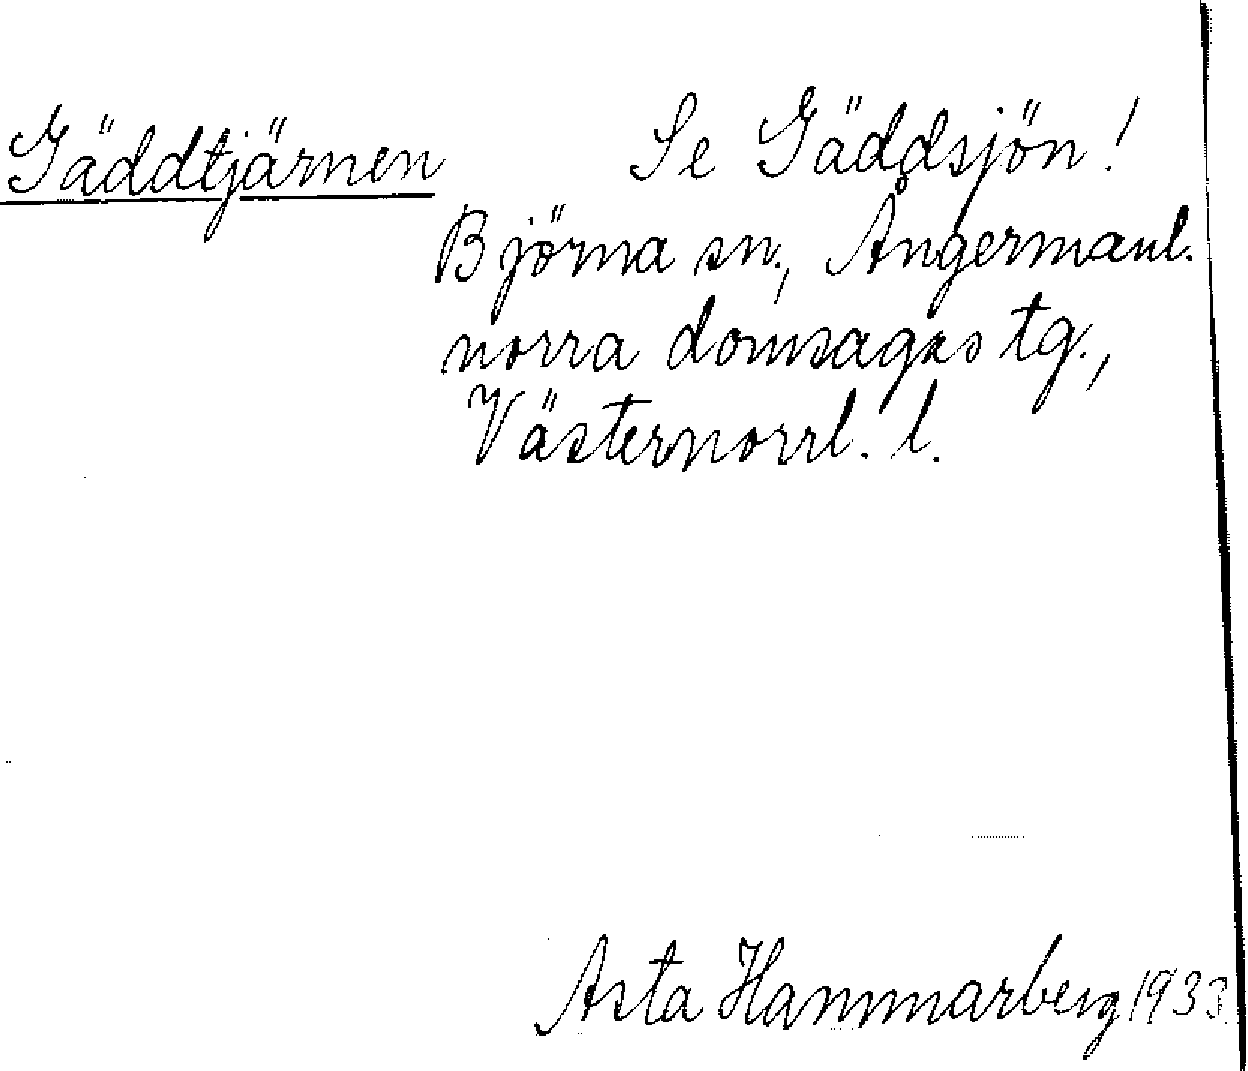 Gäddtjärnen Se Gäddsjön!
Björna sn., Ångermanl.
norra domsagas tg.,
Västernorrl. l.
Asta Hammarberg 1933